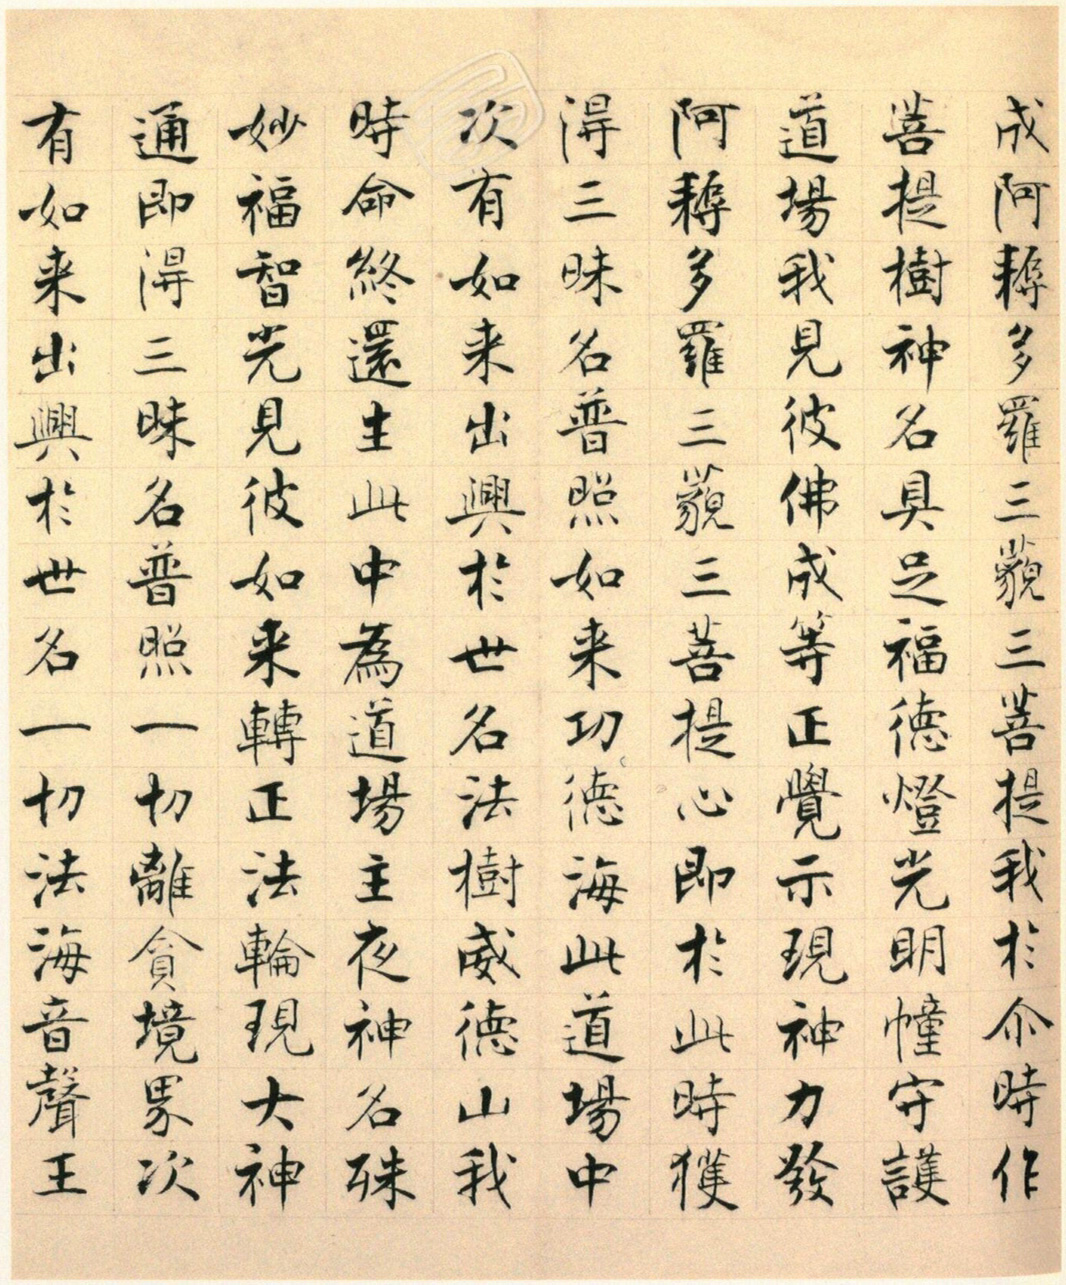 成阿耨多羅三藐三菩提我於尒時作
菩提樹神名具足福德燈光明幢守護
道場我見彼佛成等正覺示現神力發
阿耨多羅三藐三菩提心即於此時獲
得三昧名普照如来功德海此道場中
次有如来出興於世名法樹威德山我
時命終還生此中為道場主夜神名殊
妙福智光見彼如来轉正法輪現大神
通即得三昧名普照一切離貪境界次
有如来出興於世名一切法海音聲王